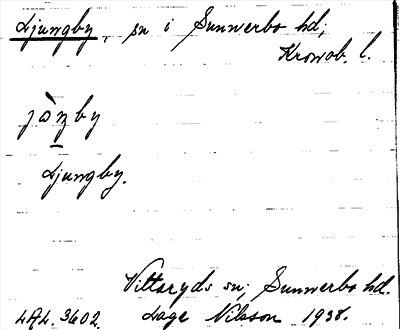 Ljungby, sn i Sunnerbo hd,
Kronob. l.
jòŋby
Ljungby.
Vittaryds sn, Sunnerbo hd.
LAL. 3602. Lage Nilsson 1938.